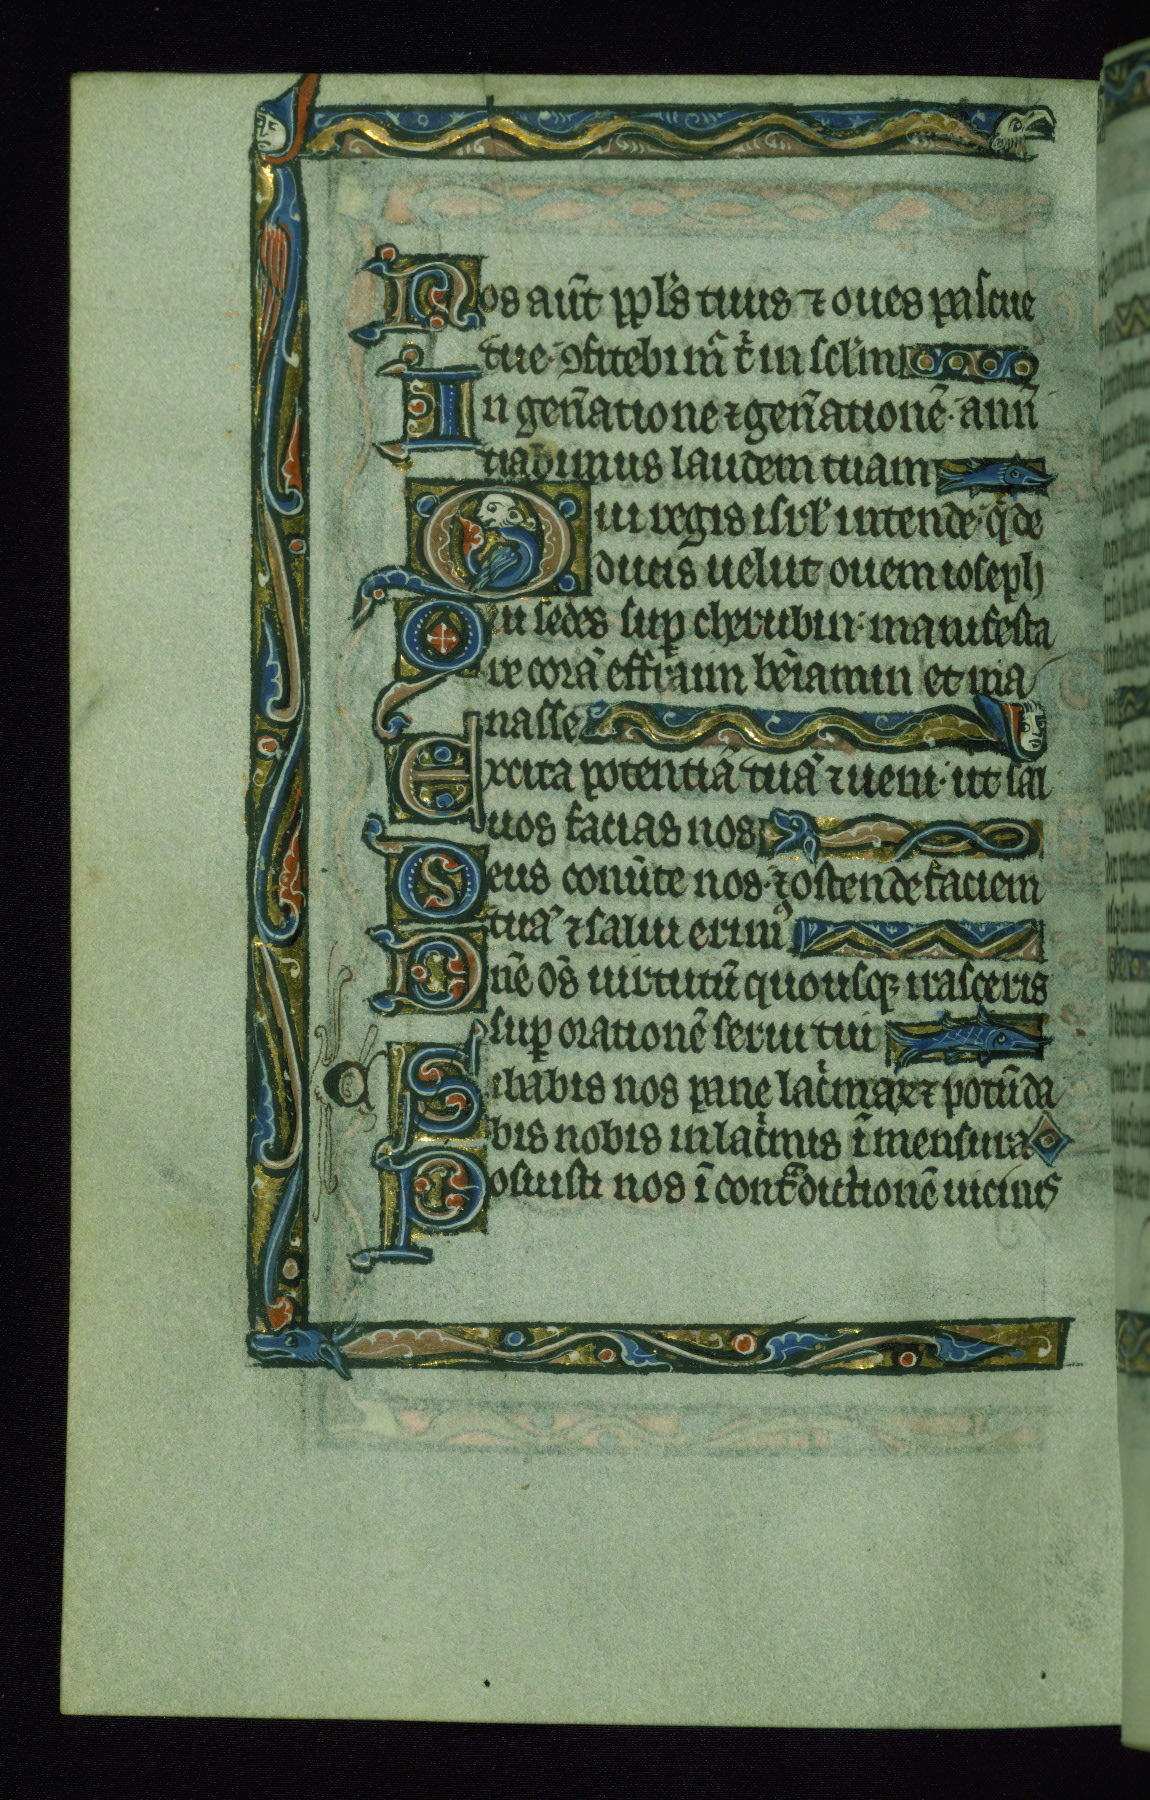 Nos aut̄ ppl's tuus ⁊ oues pascue
tue· ꝯfitebim᷒ t̾ in sc̄lm
In gen̄atione ⁊ gen̄ationē· annū
tiabimus laudem tuam
Qui regis isrl' intende· q̇ de
ducis uelut ouem ioseph
Qui sedes suꝑ cherubin· manifesta
re corā effraim beīamin et ma
nasse
Excita potentiā tuā ⁊ ueni· ut sal
uos facias nos
Deus conūte nos· ⁊ ostende faciem
tuā ⁊ salui erim᷒
Dn̄e ds̄ uirtutū quousqꝫ irasceris
suꝑ orationē serui tui
Cibabis nos pane lac̾maꝝ ⁊ potū da
bis nobis in lac̾mis ī mensura
Posuisti nos ī cont̾dictionē uicinis